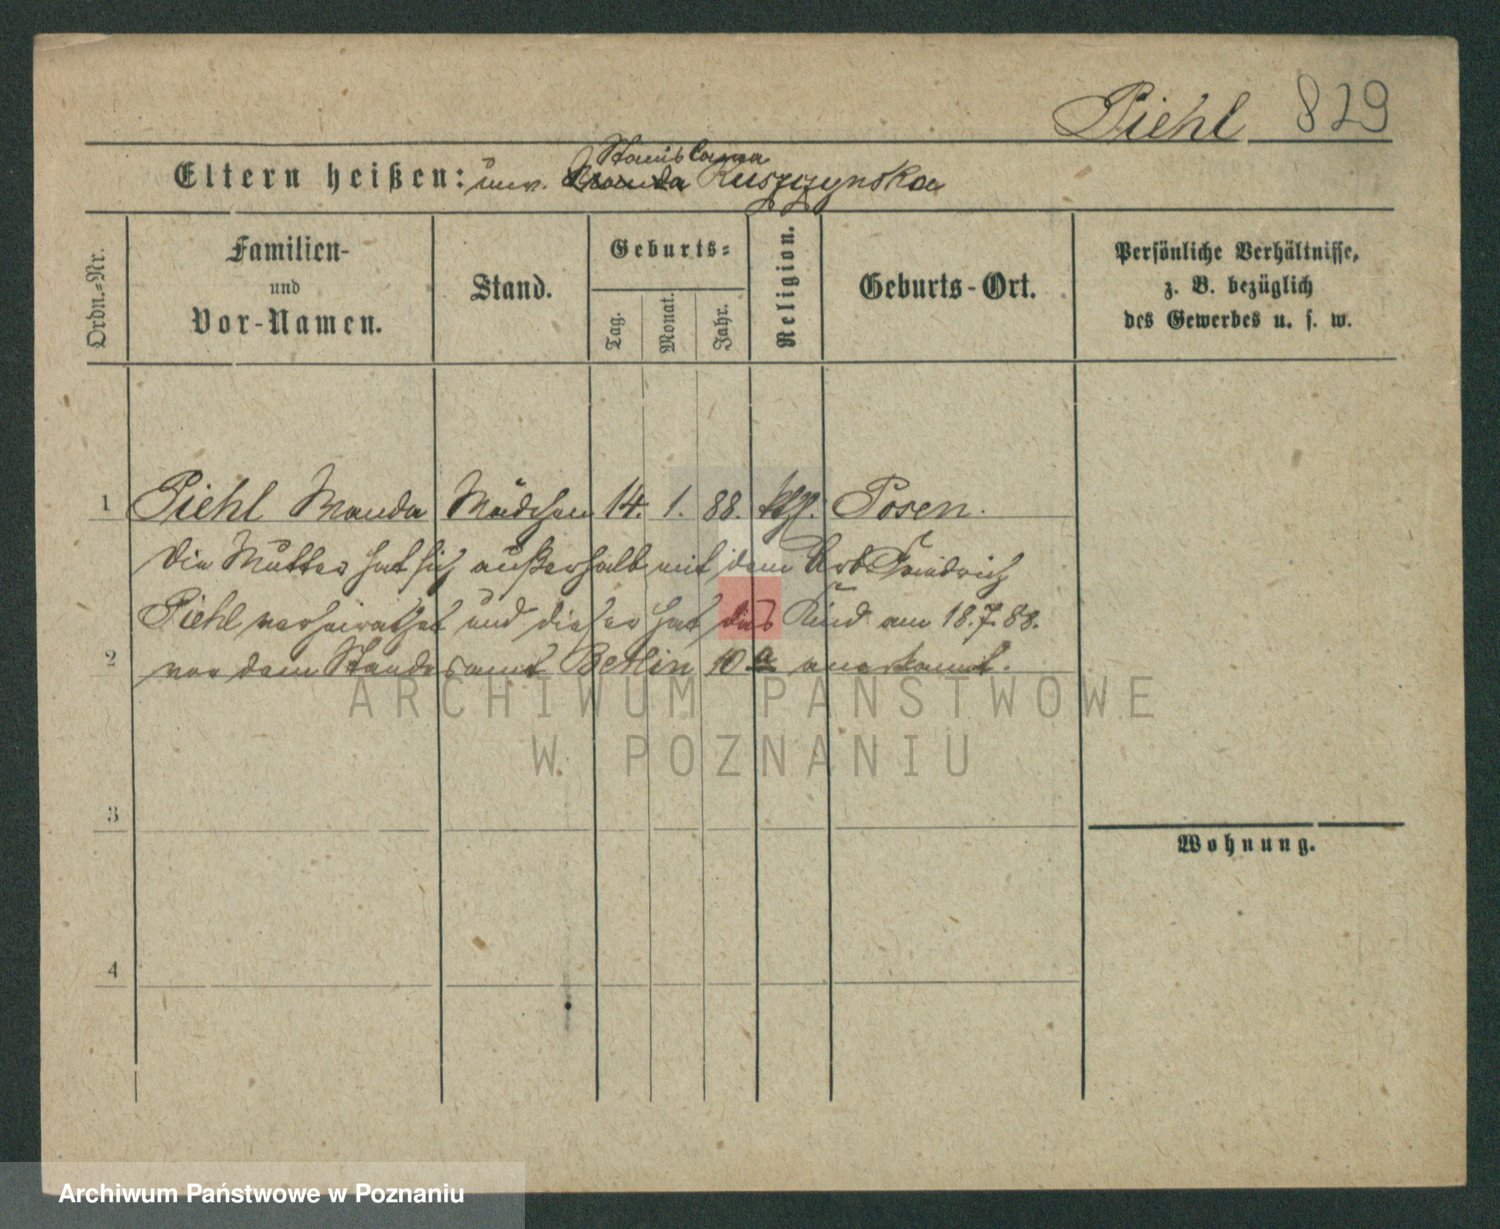 Piehl 829
Eltern heißen: unv. Stanislawa
Wanda Ruszczynska
Ordn.-Nr.
Familien-
und
Vor-Namen.
Stand.
Geburts-
Tag.
Monat.
Jahr.
Religion.
Geburts-Ort.
Persönliche Verhältnisse,
z. B. bezüglich
des Gewerbes u. s. w.
1 Piehl Wanda Mädchen 14. 1. 88. kth. Posen.
Die Mutter hat sich außerhalb mit dem Arb. Friedrich
Piehl verheirathet und dieser hat das Kind am 18.7.88.
2 vor dem Standesamt Berlin 10a anerkannt.
ARCHIWUM PAŃSTWOWE
W POZNANIU
3
Wohnung.
4
Archiwum Państwowe w Poznaniu